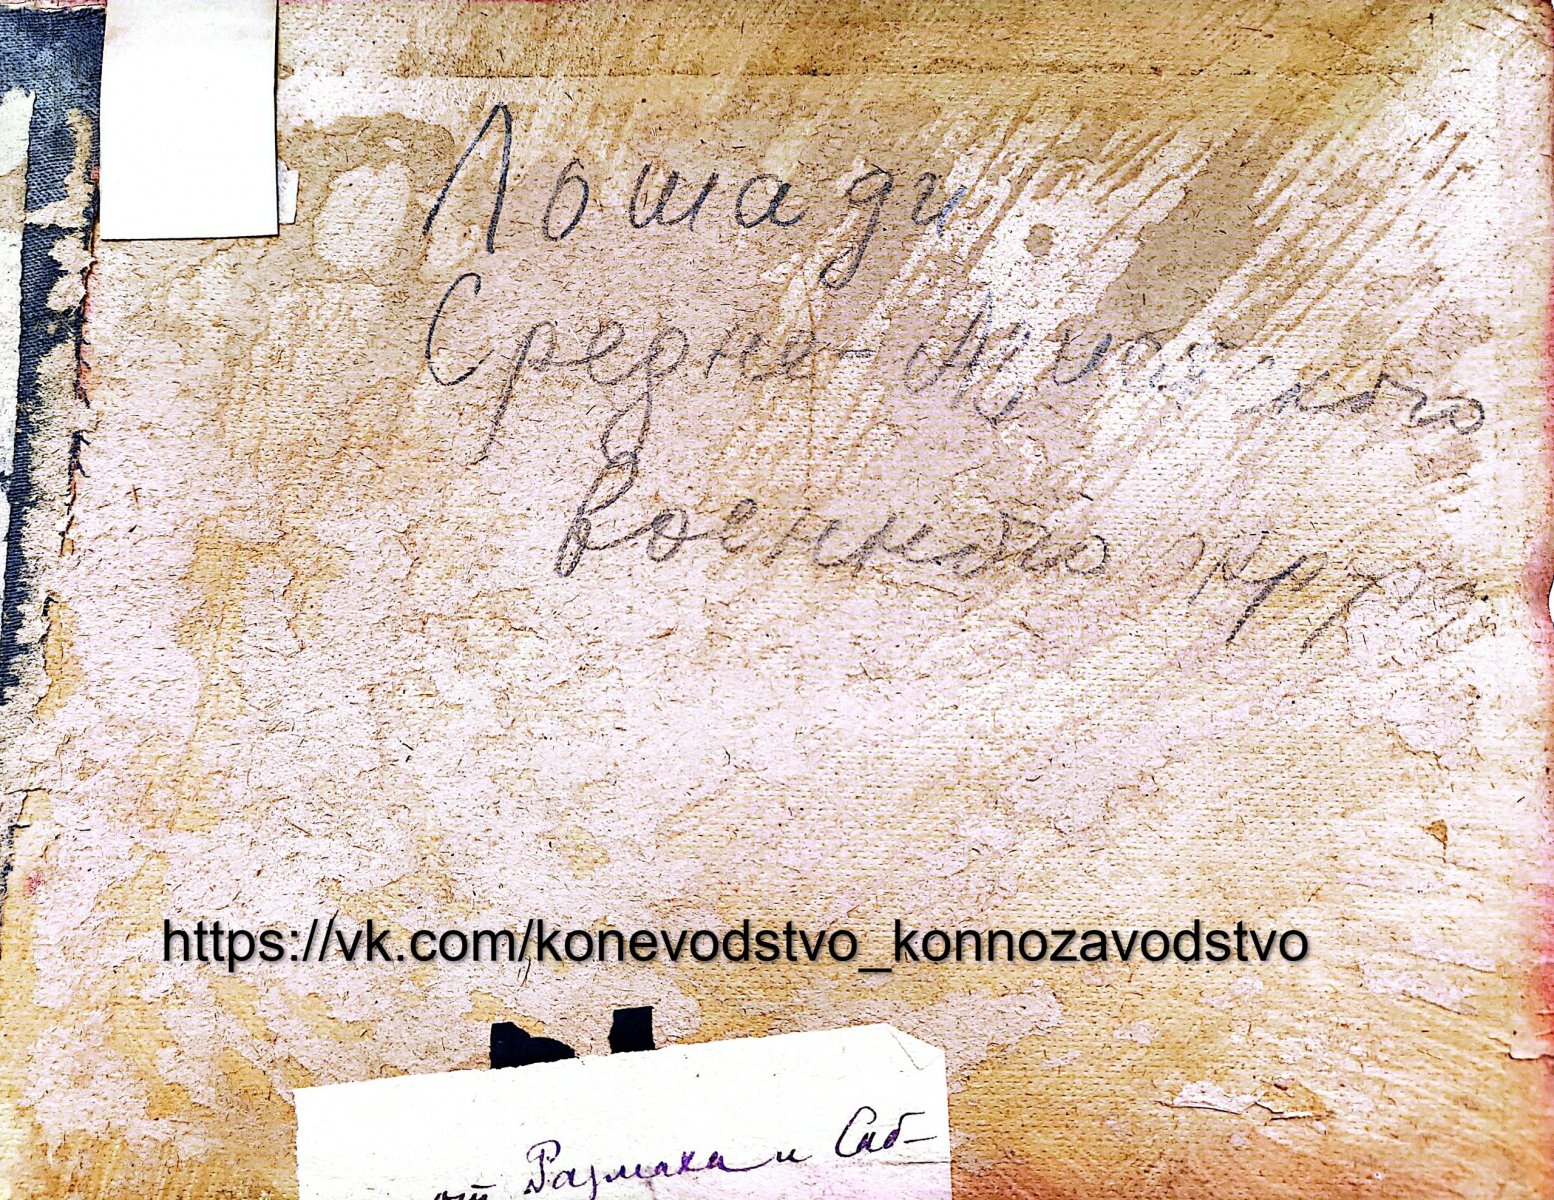 Лошади
Средне-Азиатского
военного округа
https://vk.com/konevodstvo_konnozavodstvo
от Размаха и Саб-